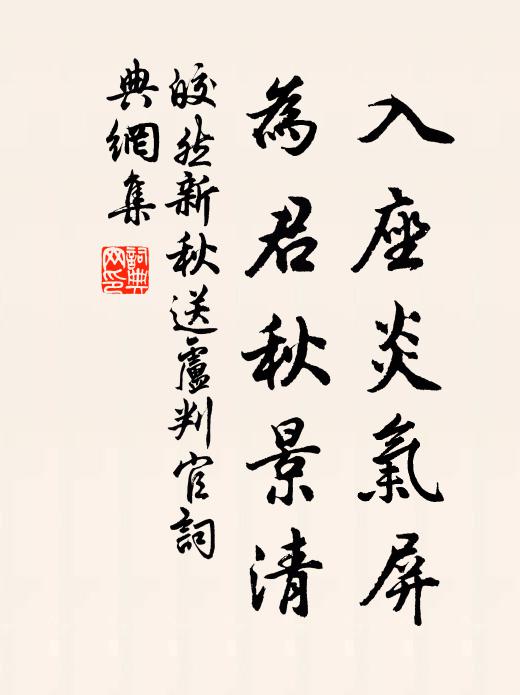 入座炎氣屏
為君秋景清
皎然新秋送盧判官詞
典網集
詞典
网印